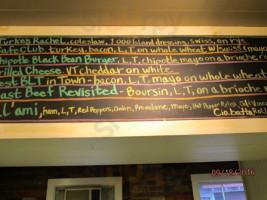 Turkey Rachel, coleslaw, 1000 island dressing, swiss, on rye
Club turkey, bacon, L,T, on whole wheat w/swiss mayo
Chipotle Black Bean Burger, L,T, chipotle mayo on a brioche
Grilled Cheese VT cheddar on white
Best BLT in Town - bacon, L,T, mayo on whole wheat
Roast Beef Revisited - Boursin, L,T, on a brioche
L'ami, ham, L,T, Red Peppers, Onion, Provolone, Mayo, Hot Pepper Relish, Oil
Ciabatta Roll
09/18/2016